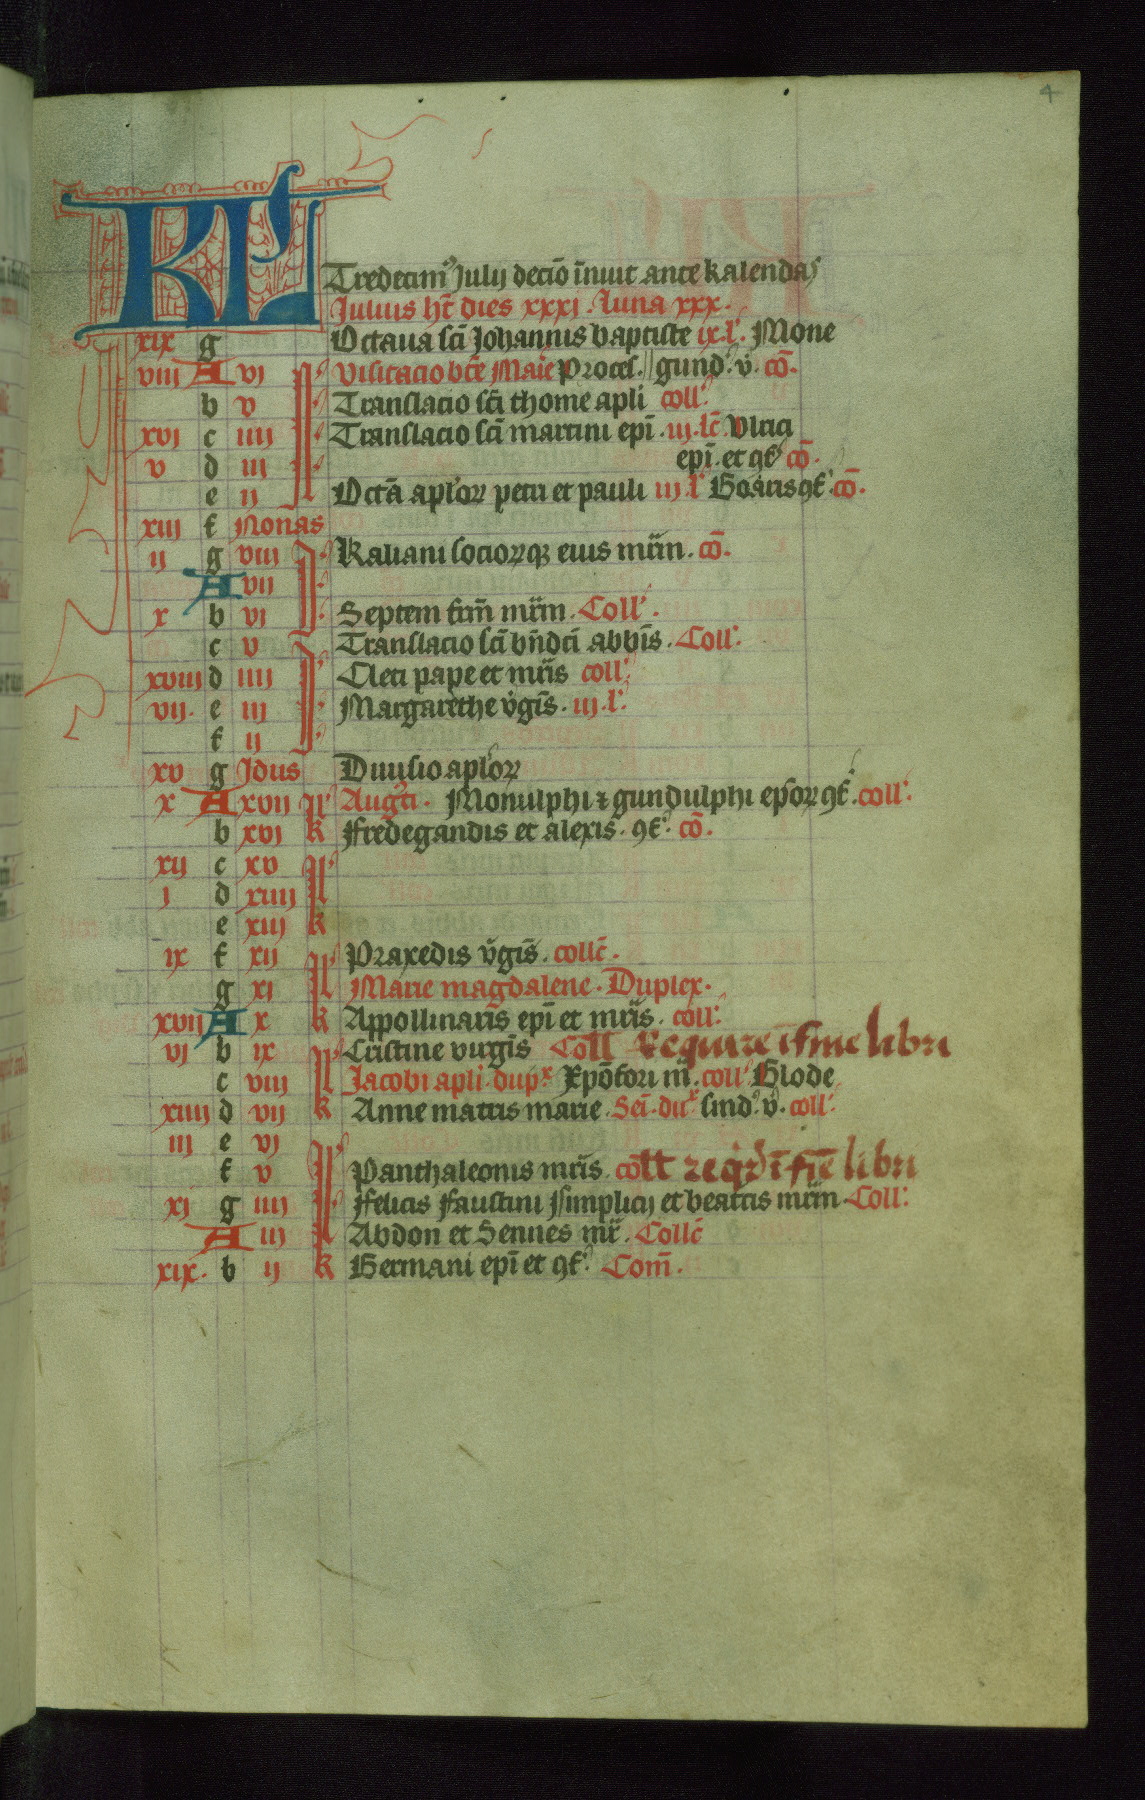 4
KL Tredecim⁹ Julij decīo īnuit ante kalendas
Julius hēt dies xxxi. Luna xxx.
xix g Octaua scī Johannis baptiste ix. l'. Mone
viii A vi N⁹ Visitacio btē Marie Proces. gund⁹. v̄. cō.
b v Translacio scī thome apli coll'.
xvi c iiii Translacio scī martini epī. iij. lc̄. Vlrici
v d iii epī. et 9f⁹ cō.
e ij Octā aplor petri et pauli iij. l' Goaris 9f'. cō.
xiii f Nonas
ij g viii J⁹ Kiliani socior q; eius mr̄m. cō.
A vii
x b vi Septem frm̄ mr̄m. Coll'.
c v Translacio scī bn̄dcī abbīs. Coll'.
xviii d iiii Cleti pape et mr̄is coll'.
vii. e iii Margarethe v̄gīs. iij. l'.
f ij
xv g Jdus Diuisio aplor
x A xvii Aug⁹ti. Monulphi ⁊ gundulphi epōr 9f'. coll'.
b xvi k Fredegandis et alexis. 9f'. cō.
xij c xv
i d xiiii
e xiij k
ix f xij Praxedis v̄gīs. collc̄.
g xi Marie magdalene. Duplex.
xvii A x k Appollinaris epī et mr̄is. coll'.
vi b ix Cristine virgīs Coll Require ī fine libri
c viii Jacobi apli. dupˣ Xpōfori m̄. coll' Glode
xiiii d vij k Anne matris marie. Scī. duˣ sind⁹. v̄. coll'.
iii e vi
f v Panthaleonis mr̄is. coll reqr̄ ī fīe libri
xi g iiii Felicis Faustini simplicij et beatrīs mr̄m Coll'.
A iij Abdon et Sennes mr̄. Collc̄
xix. b ij k Germani epī et 9f'. Com̄.